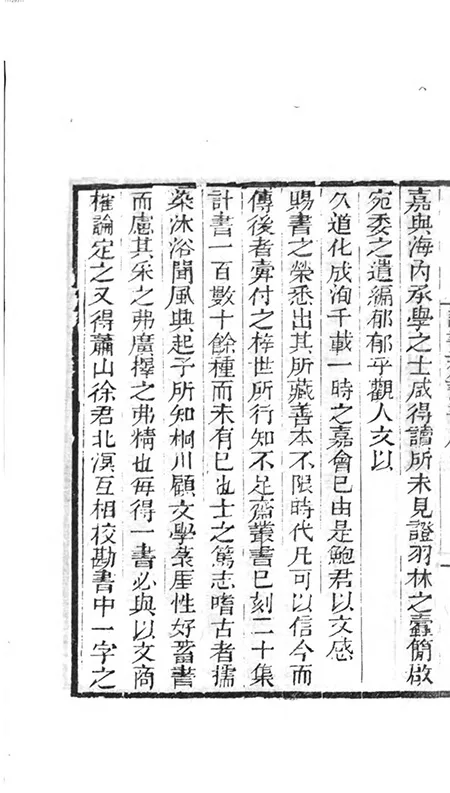 嘉與海內承學之士咸得讀所未見證羽林之蠹簡啟
宛委之遺編郁郁乎觀人文以
久道化成洵千載一時之嘉會已由是鮑君以文感
賜書之榮悉出其所藏善本不限時代凡可以信今而
傳後者彙付之梓世所行知不足齋叢書已刻二十集
計書一百數十餘種而未有已也士之篤志嗜古者擩
染沐浴聞風興起予所知桐川顧文學菉厓性好畜書
而慮其采之弗廣擇之弗精也每得一書必與以文商
榷論定之又得蕭山徐君北溟互相校勘書中一字之